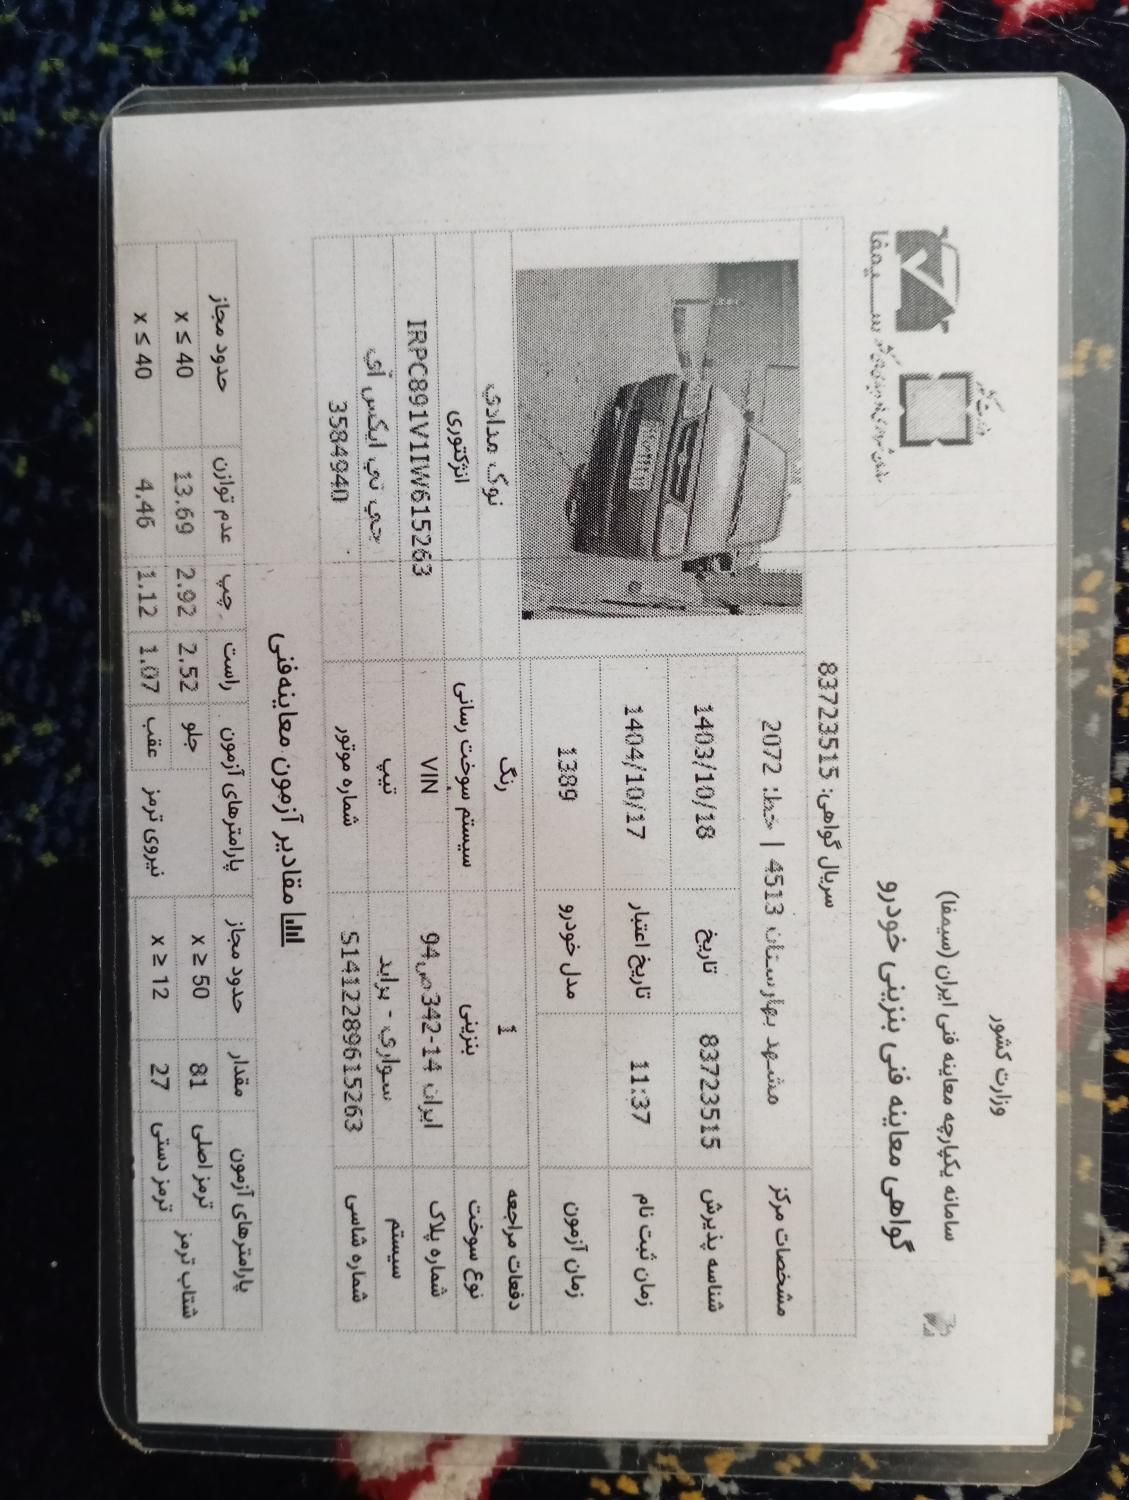 وزارت کشور
سامانه یکپارچه معاینه فنی ایران (سیمفا)
گواهی معاینه فنی بنزینی خودرو
وزارت کشور
سیمفا
سریال گواهی: 83723515
مشخصات مرکز مشهد بهارستان 4513 | خط: 2072
شناسه پذیرش 83723515 تاریخ 1403/10/18
زمان ثبت نام 11:37 تاریخ اعتبار 1404/10/17
زمان آزمون مدل خودرو 1389
دفعات مراجعه 1 رنگ نوک مدادی
نوع سوخت بنزینی سیستم سوخت رسانی انژکتوری
شماره پلاک ایران 14-342ص94 VIN IRPC891V1IW615263
سیستم سواري - پراید تیپ جي تي ایکس آي
شماره شاسی S1412289615263 شماره موتور 3584940
مقادیر آزمون معاینه‌فنی
پارامترهای آزمون مقدار حدود مجاز پارامترهای آزمون راست چپ عدم توازن حدود مجاز
شتاب ترمز ترمز اصلی 81 x ≥ 50 نیروی ترمز جلو 2.52 2.92 13.69 x ≤ 40
ترمز دستی 27 x ≥ 12 عقب 1.07 1.12 4.46 x ≤ 40